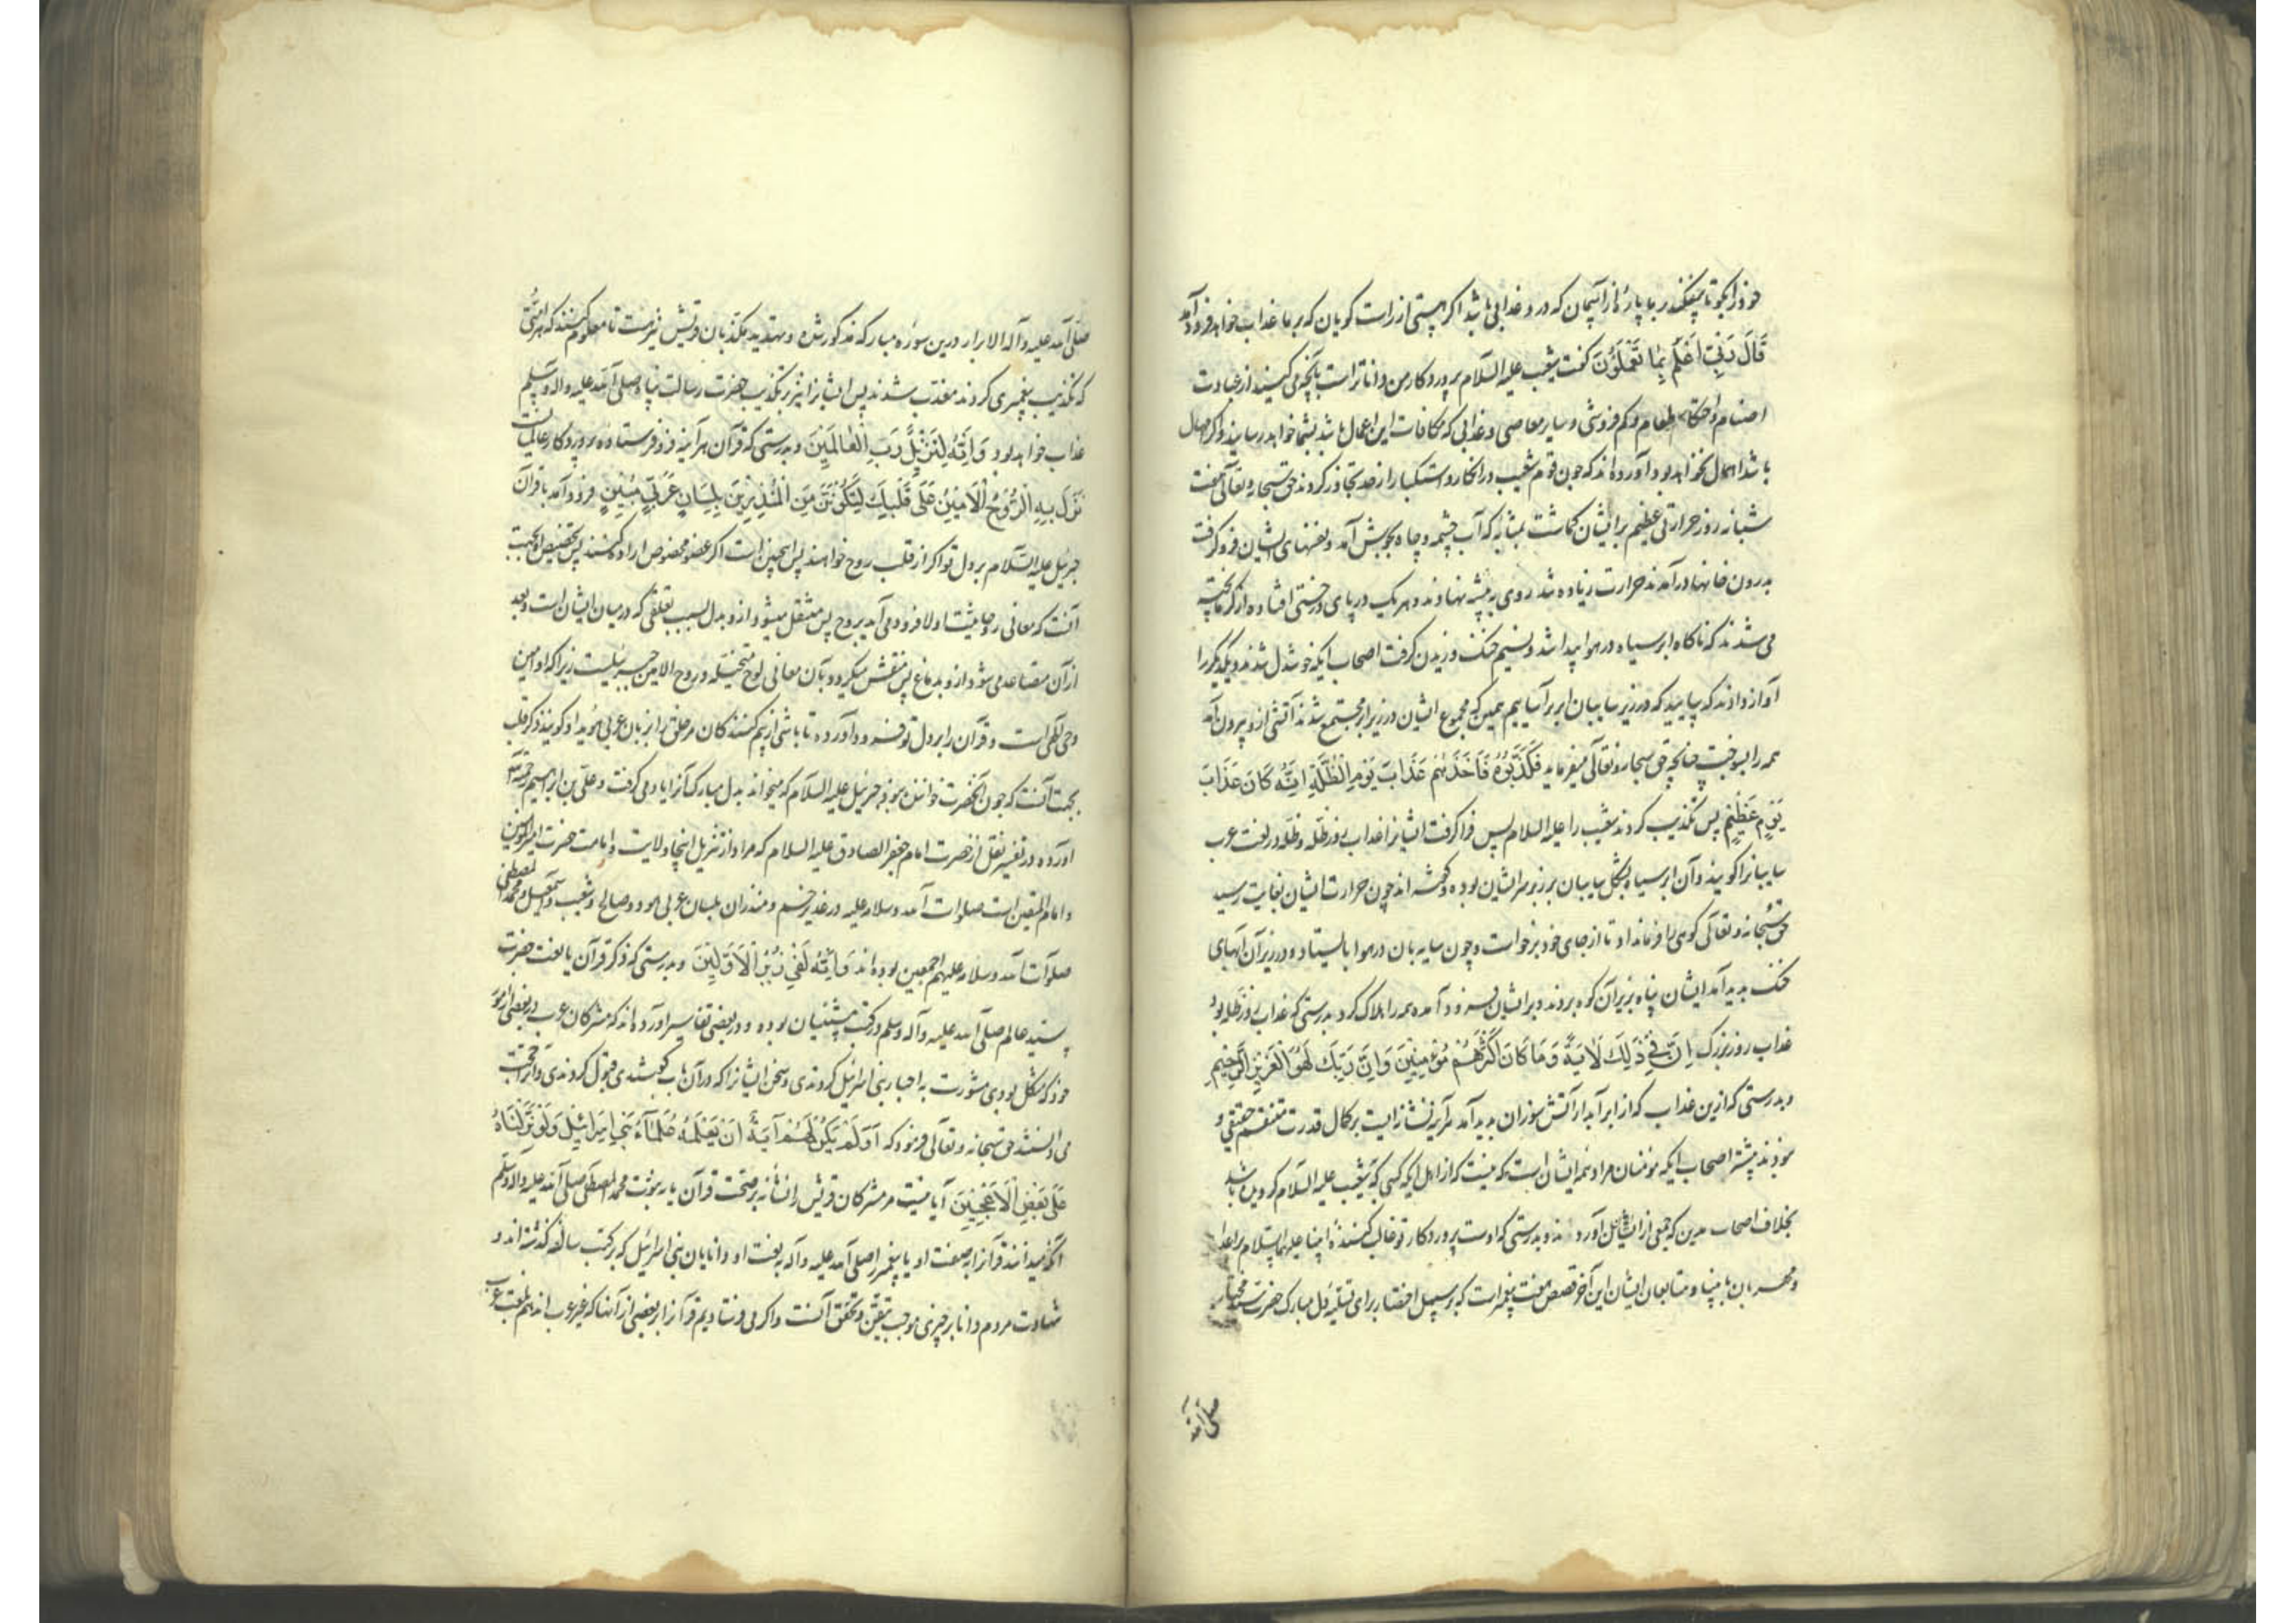 خود را بگو تا بیفکند بر ما پارهٔ از آسمان که درو عذابی باشد اگر هستی از راست گویان که بر ما عذاب خواهد فرود آمد
قَالَ رَبِّی اَعْلَمُ بِمَا تَعْمَلُونَ گفت شعیب علیه السلام پروردگار من داناتر است بآنچه می کنید از عبادت
اصنام و احتکار طعام و کم فروشی و سایر معاصی و عذابی که مکافات این اعمال باشد بشما خواهد رسانید و اگر امهال
باشد اهمال نخواهد بود آورده اند که چون قوم شعیب در انکار و استکبار از حد تجاوز کردند حق سبحانه و تعالی هفت
شبانه روز حرارتی عظیم بر ایشان گماشت بمثابه که آب چشمه و چاه بجوش آمد و نفسهای ایشان فرو گرفت
بدرون خانها در آمدند حرارت زیاده شد روی به بیشه نهادند و هر یک در پای درختی افتاده از گرما پخته
می شدند که ناگاه ابر سیاه در هوا پیدا شد و نسیم خنک وزیدن گرفت اصحاب ایکه خوشدل شدند و یکدیگر را
آواز دادند که بیایید که در زیر سایبان ابر بر آساییم همین که مجموع ایشان در زیر ابر مجتمع شدند آتشی ازو بیرون آمد
همه را بسوخت چنانچه حق سبحانه و تعالی میفرماید فَكَذَّبُوهُ فَاَخَذَهُمْ عَذَابُ يَوْمِ الظُّلَّةِ اِنَّهُ كَانَ عَذَابَ
يَوْمٍ عَظِيمٍ پس تکذیب کردند شعیب را علیه السلام پس فرا گرفت ایشانرا عذاب روز ظله و ظله در لغت عرب
سایبانرا گویند و آن ابر سیاه بشکل سایبان بر زبر سر ایشان بوده و گفته اند چون حرارت ایشان بغایت رسید
حق سبحانه و تعالی کوهی را فرمان داد تا از جای خود برخاست و چون سایه بان در هوا بایستاد و در زیر آن آبهای
خنک پدید آمد ایشان پناه بزیر آن کوه بردند و بر ایشان فرود آمده همه را هلاک کرد بدرستی که عذاب روز ظله بود
عذاب روز بزرگ اِنَّ فِي ذَلِكَ لَايَةً وَمَا كَانَ اَكْثَرُهُمْ مُؤْمِنِينَ وَاِنَّ رَبَّكَ لَهُوَ الْعَزِيزُ الرَّحِيمُ
و بدرستی که ازین عذاب که از ابر آبدار آتش سوزان پدید آمد هر آینه نشانه ایست بر کمال قدرت منتقم حقیقی و
نبودند بیشتر اصحاب ایکه مؤمنان مراد همه ایشان است که نیست که از اهل ایکه کسی که بشعیب علیه السلام گرویده باشد
بخلاف اصحاب مدین که جمعی از ایشان ایمان آوردند و بدرستی که اوست پروردگار تو غالب کننده انبیا علیهم السلام بر اعدا
و مهربان بانبیا و متابعان ایشان این آخر قصص هفت پیغمبر است که بر سبیل اختصار برای تسلیه دل مبارک حضرت سید مختار
صلی الله
صلی الله علیه و آله الابرار درین سوره مبارکه مذکور شده و تهدید مکذبان قریش نیز هست تا معلوم کنند که هر امتی
که تکذیب پیغمبری کردند معذب شدند پس ایشانرا نیز بر تکذیب حضرت رسالت پناه صلی الله علیه و اله و سلم
عذاب خواهد بود وَاِنَّهُ لَتَنْزِيلُ رَبِّ الْعَالَمِينَ و بدرستی که قرآن هر آینه فرو فرستاده پروردگار عالمیانست
نَزَلَ بِهِ الرُّوحُ الْاَمِينُ عَلَى قَلْبِكَ لِتَكُونَ مِنَ الْمُنْذِرِينَ بِلِسَانٍ عَرَبِيٍّ مُبِينٍ فرود آمد با قرآن
جبرئیل علیه السلام بر دل تو اگر از قلب روح خواهند پس همچنین است اگر عضو مخصوص اراده کنند پس تخصیص او بجهت
آنست که معانی روحانیت اولا فرود می آید بروح پس منتقل میشود ازو بدل بسبب تعلقی که در میان ایشان است و بعد
از آن متصاعد می شود ازو بدماغ پس منقش میگردد بآن معانی لوح متخیله و روح الامین جبرئیلست زیرا که او امین
وحی الهی است و قرآن را بر دل تو فرود آورده تا باشی از بیم کنندگان مر خلق را بزبان عربی هویدا و گویند ذکر قلب
بجهت آنست که چون آنحضرت خواننده نبود جبرئیل علیه السلام که میخواند بدل مبارک آنرا یاد می گرفت و علی بن ابراهیم رحمه الله
آورده در تفسیر نقل از حضرت امام جعفر الصادق علیه السلام که مراد از تنزیل اینجا ولایت و امامت حضرت امیرالمؤمنین
و امام المتقین است صلوات الله و سلامه علیه در غدیر خم و منذران بلسان عربی هود و صالح و شعیب و اسمعیل و محمد المصطفی
صلوات الله و سلامه علیهم اجمعین بوده اند وَاِنَّهُ لَفِي زُبُرِ الْاَوَّلِينَ و بدرستی که ذکر قرآن یا نعت حضرت
سید عالم صلی الله علیه و آله و سلم در کتب پیشینیان بوده و در بعضی تفاسیر آورده اند که مشرکان عرب در بعضی از امور
خود که مشکل بودی مشورت به احبار بنی اسرائیل کردندی و سخن ایشانرا که در آن باب گفتندی قبول کردندی و آنرا حجت
می دانستند حق سبحانه و تعالی فرمود که اَوَلَمْ يَكُنْ لَهُمْ آيَةً اَنْ يَعْلَمَهُ عُلَمَآءُ بَنِي اِسْرَائِيلَ وَلَوْ نَزَّلْنَاهُ
عَلَى بَعْضِ الْاَعْجَمِينَ آیا نیست مر مشرکان قریش را نشانه بر صحت قرآن یا بر نبوت محمد المصطفی صلی الله علیه و آله و سلم
آنکه میدانند قرآنرا بصفت او یا پیغمبر را صلی الله علیه و آله بنعت او دانایان بنی اسرائیل که بر کتب سالفه گذشته اند و
شهادت مردم دانا بر چیزی موجب تیقن و تحقق آنست و اگر می فرستادیم قرآنرا بر بعضی از آنها که غیر عرب اند هم بلغت عرب